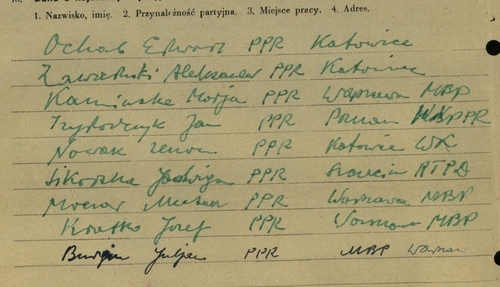 1. Nazwisko, imię. 2. Przynależność partyjna. 3. Miejsce pracy. 4. Adres.
Ochab Edward PPR Katowice
Zawadzki Aleksander PPR Katowice
Kamińska Marja PPR Warszawa MBP
Jan PPR Poznań PPR
Nowak Zenon PPR Katowice WK
Sikorska Jadwiga PPR Szczecin RTPD
Moczar PPR Warszawa MBP
Kratko Józef PPR Warszawa MBP
Burgin Juljan PPR MBP Warszawa